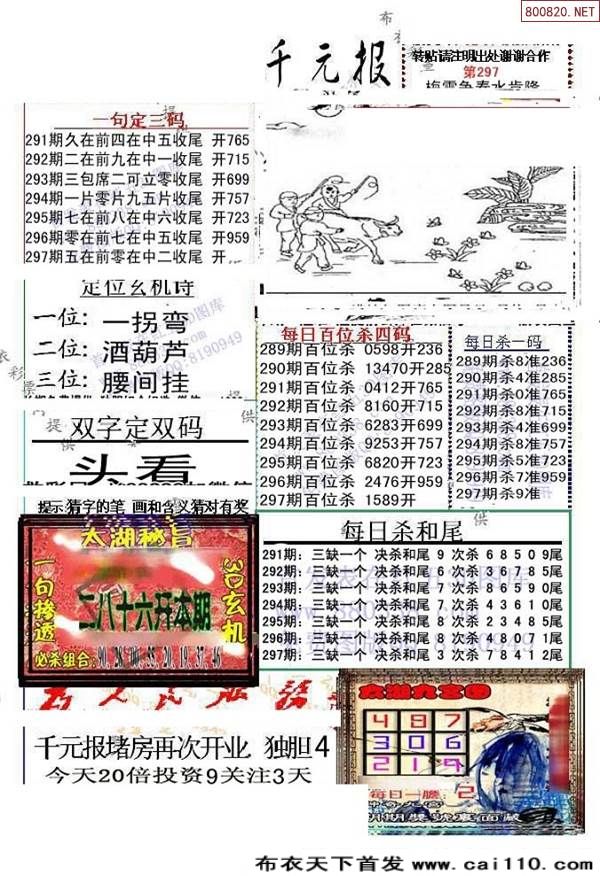 800820.NET
千元报
转贴请注明出处谢谢合作
第297
一句定三码
291期久在前四在中五收尾 开765
292期二在前九在中一收尾 开715
293期三包席二可立零收尾 开699
294期一片零片九五片收尾 开757
295期七在前八在中六收尾 开723
296期零在前七在中五收尾 开959
297期五在前零在中二收尾 开
定位玄机诗
一位: 一拐弯
二位: 酒葫芦
三位: 腰间挂
双字定双码
头看
提示:猜字的笔 画和含义猜对有奖
每日百位杀四码
289期百位杀 0598开236
290期百位杀 13470开285
291期百位杀 0412开765
292期百位杀 8160开715
293期百位杀 6283开699
294期百位杀 9253开757
295期百位杀 6820开723
296期百位杀 2476开959
297期百位杀 1589开
每日杀一码
289期杀8准236
290期杀4准285
291期杀0准765
292期杀8准715
293期杀4准699
294期杀8准757
295期杀5准723
296期杀7准959
297期杀9准
太湖秘旨
一句惨透
3D玄机
二八十六开本期
必杀组合:90.28.00.33.20.19.37.46
每日杀和尾
291期: 三缺一个 决杀和尾 9 次杀 6 8 5 0 9尾
292期: 三缺一个 决杀和尾 6 次杀 3 6 7 8 5尾
293期: 三缺一个 决杀和尾 7 次杀 8 6 5 9 0尾
294期: 三缺一个 决杀和尾 7 次杀 4 3 6 1 0尾
295期: 三缺一个 决杀和尾 8 次杀 2 3 4 8 5尾
296期: 三缺一个 决杀和尾 8 次杀 4 8 0 7 1尾
297期: 三缺一个 决杀和尾 3 次杀 7 8 4 1 2尾
千元报堵房再次开业 独胆4
今天20倍投资9关注3天
4 8 7
3 0 6
2 1 9
每日一胆: 2
布衣天下首发 www.cai110.com